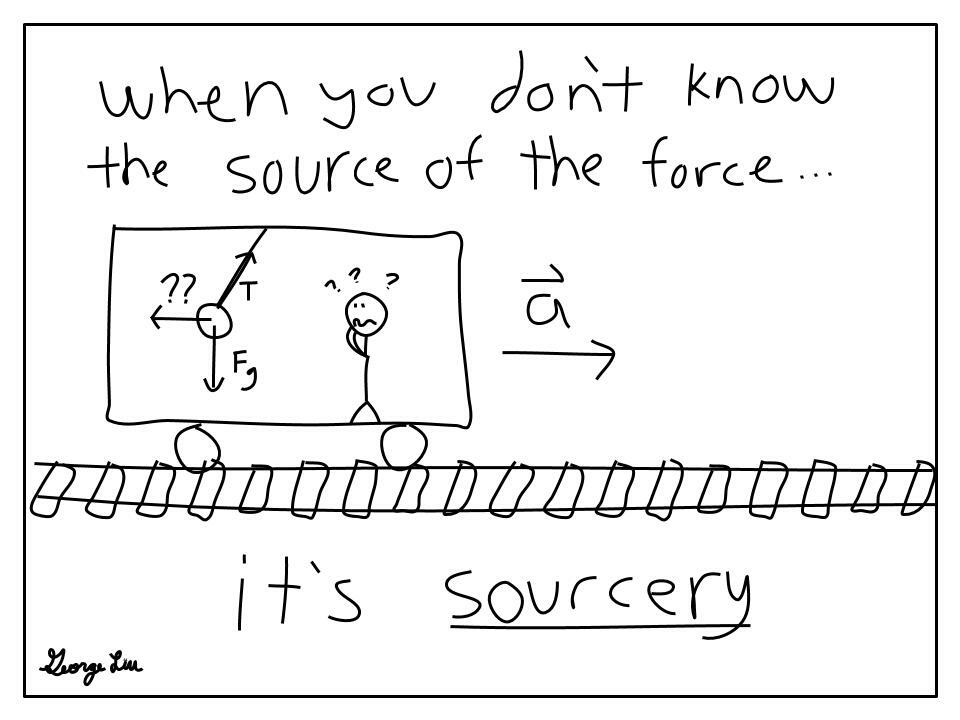 when you don't know
the source of the force...
??
T
Fg
? ? ?
a
it's sourcery
George Liu